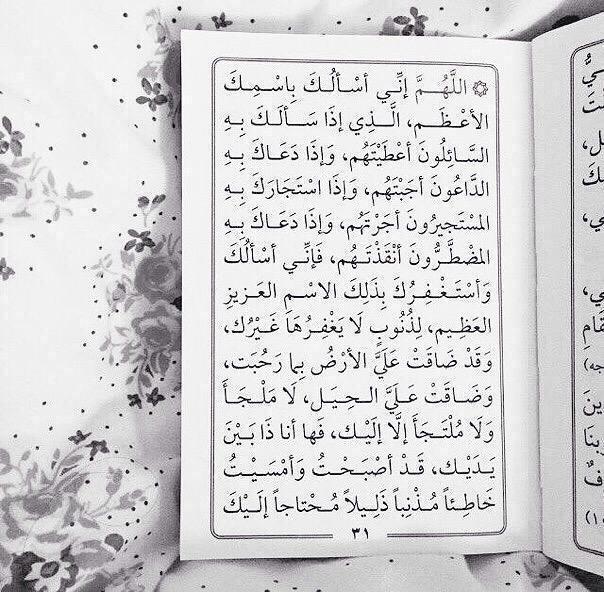 اللَّهُمَّ إِنِّي أَسْأَلُكَ بِاسْمِكَ
الأَعْظَمِ، الَّذِي إِذَا سَأَلَكَ بِهِ
السَّائِلُونَ أَعْطَيْتَهُم، وَإِذَا دَعَاكَ بِهِ
الدَّاعُونَ أَجَبْتَهُم، وَإِذَا اسْتَجَارَكَ بِهِ
المُسْتَجِيرُونَ أَجَرْتَهُم، وَإِذَا دَعَاكَ بِهِ
المُضْطَّرُونَ أَنْقَذْتَهُم، فَإِنِّي أَسْأَلُكَ
وَأَسْتَغْفِرُكَ بِذَلِكَ الاسْمِ العَزِيزِ
العَظِيمِ، لِذُنُوبٍ لَا يَغْفِرُهَا غَيْرُكَ،
وَقَدْ ضَاقَتْ عَلَيَّ الأَرْضُ بِمَا رَحُبَت،
وَضَاقَتْ عَلَيَّ الحِيَل، لَا مَلْجَأَ
وَلَا مُلْتَجَأَ إِلَّا إِلَيْك، فَها أنا ذَا بَيْنَ
يَدَيْك، قَدْ أَصْبَحْتُ وَأَمْسَيْتُ
خَاطِئاً مُذْنِباً ذَلِيلاً مُحْتاجاً إِلَيْكَ
٣١